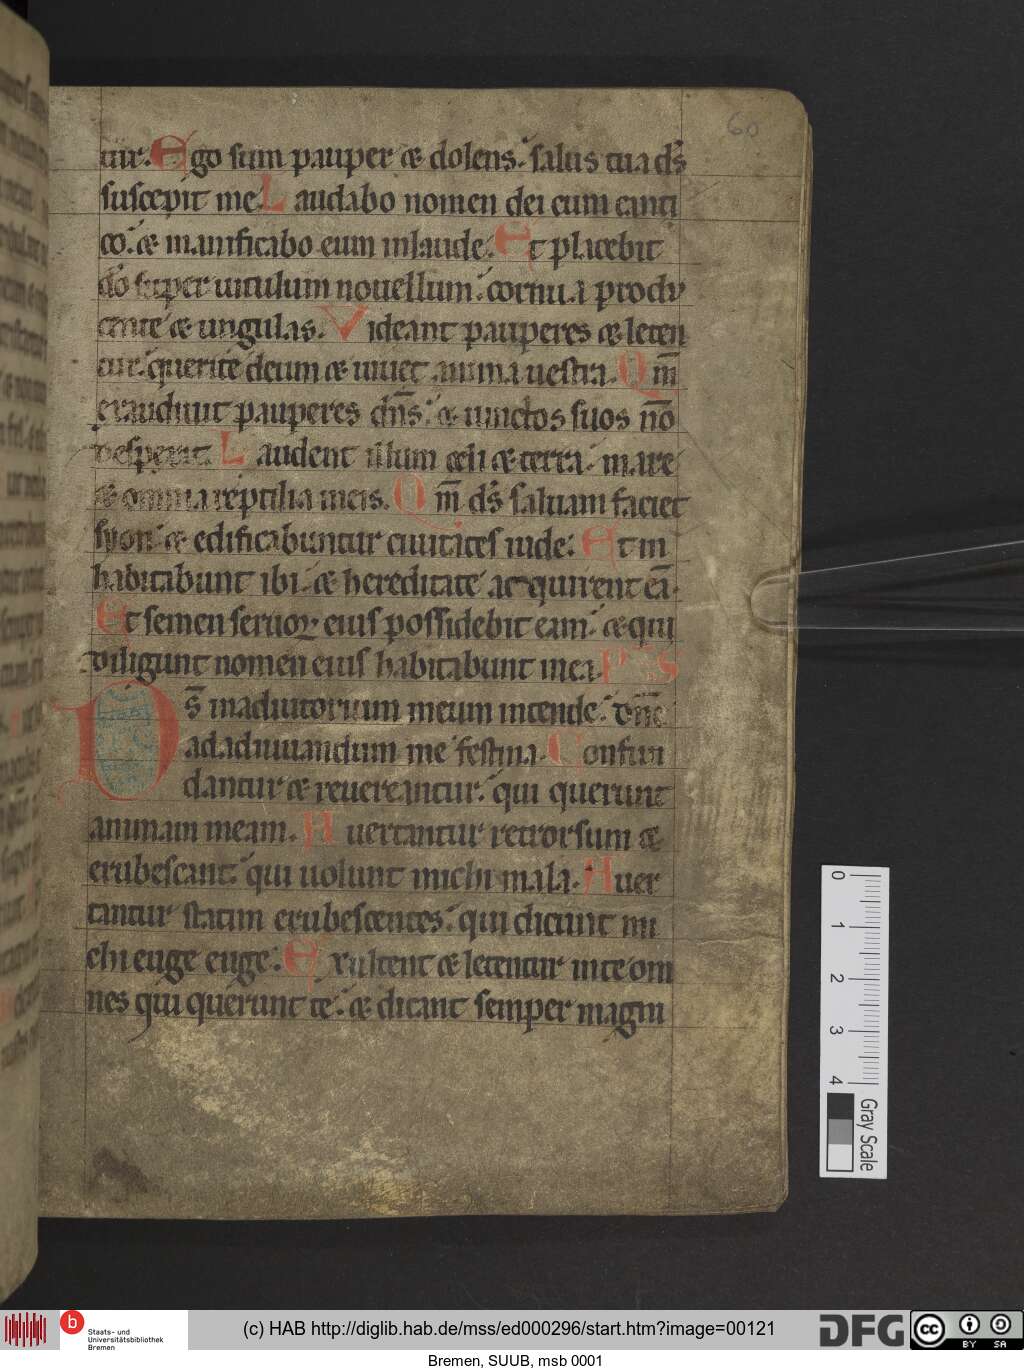 60
tur. Ego sum pauper & dolens. salus tua ds̄
suscepit me. Laudabo nomen dei cum canti
co. & manificabo eum in laude. Et placebit
dō super uitulum nouellum. cornua produ
cente & ungulas. Videant pauperes & leten
tur. querite deum & uiuet anima uestra. Qm̄
exaudiuit pauperes dn̄s. & uinctos suos nō
despexit. Laudent illum celi & terra. mare
& omnia reptilia in eis. Qm̄ ds̄ saluam faciet
syon & edificabuntur ciuitates iude. Et in
habitabunt ibi. & hereditate acquirent eā.
Et semen seruoꝝ eius possidebit eam. & qui
diligunt nomen eius habitabunt in ea. PS
Ds̄ in adiutorium meum intende. dn̄e
ad adiuuandum me festina. Confun
dantur & reuereantur. qui querunt
animam meam. Auertantur retrorsum &
erubescant. qui uolunt michi mala. Auer
tantur statim erubescentes. qui dicunt mi
chi euge euge. Exultent & letentur in te om
nes qui querunt te. & dicant semper magni
0
1
2
3
4
Gray Scale
b
Staats- und
Universitätsbibliothek
Bremen
(c) HAB http://diglib.hab.de/mss/ed000296/start.htm?image=00121
DFG
cc
BY SA
Bremen, SUUB, msb 0001